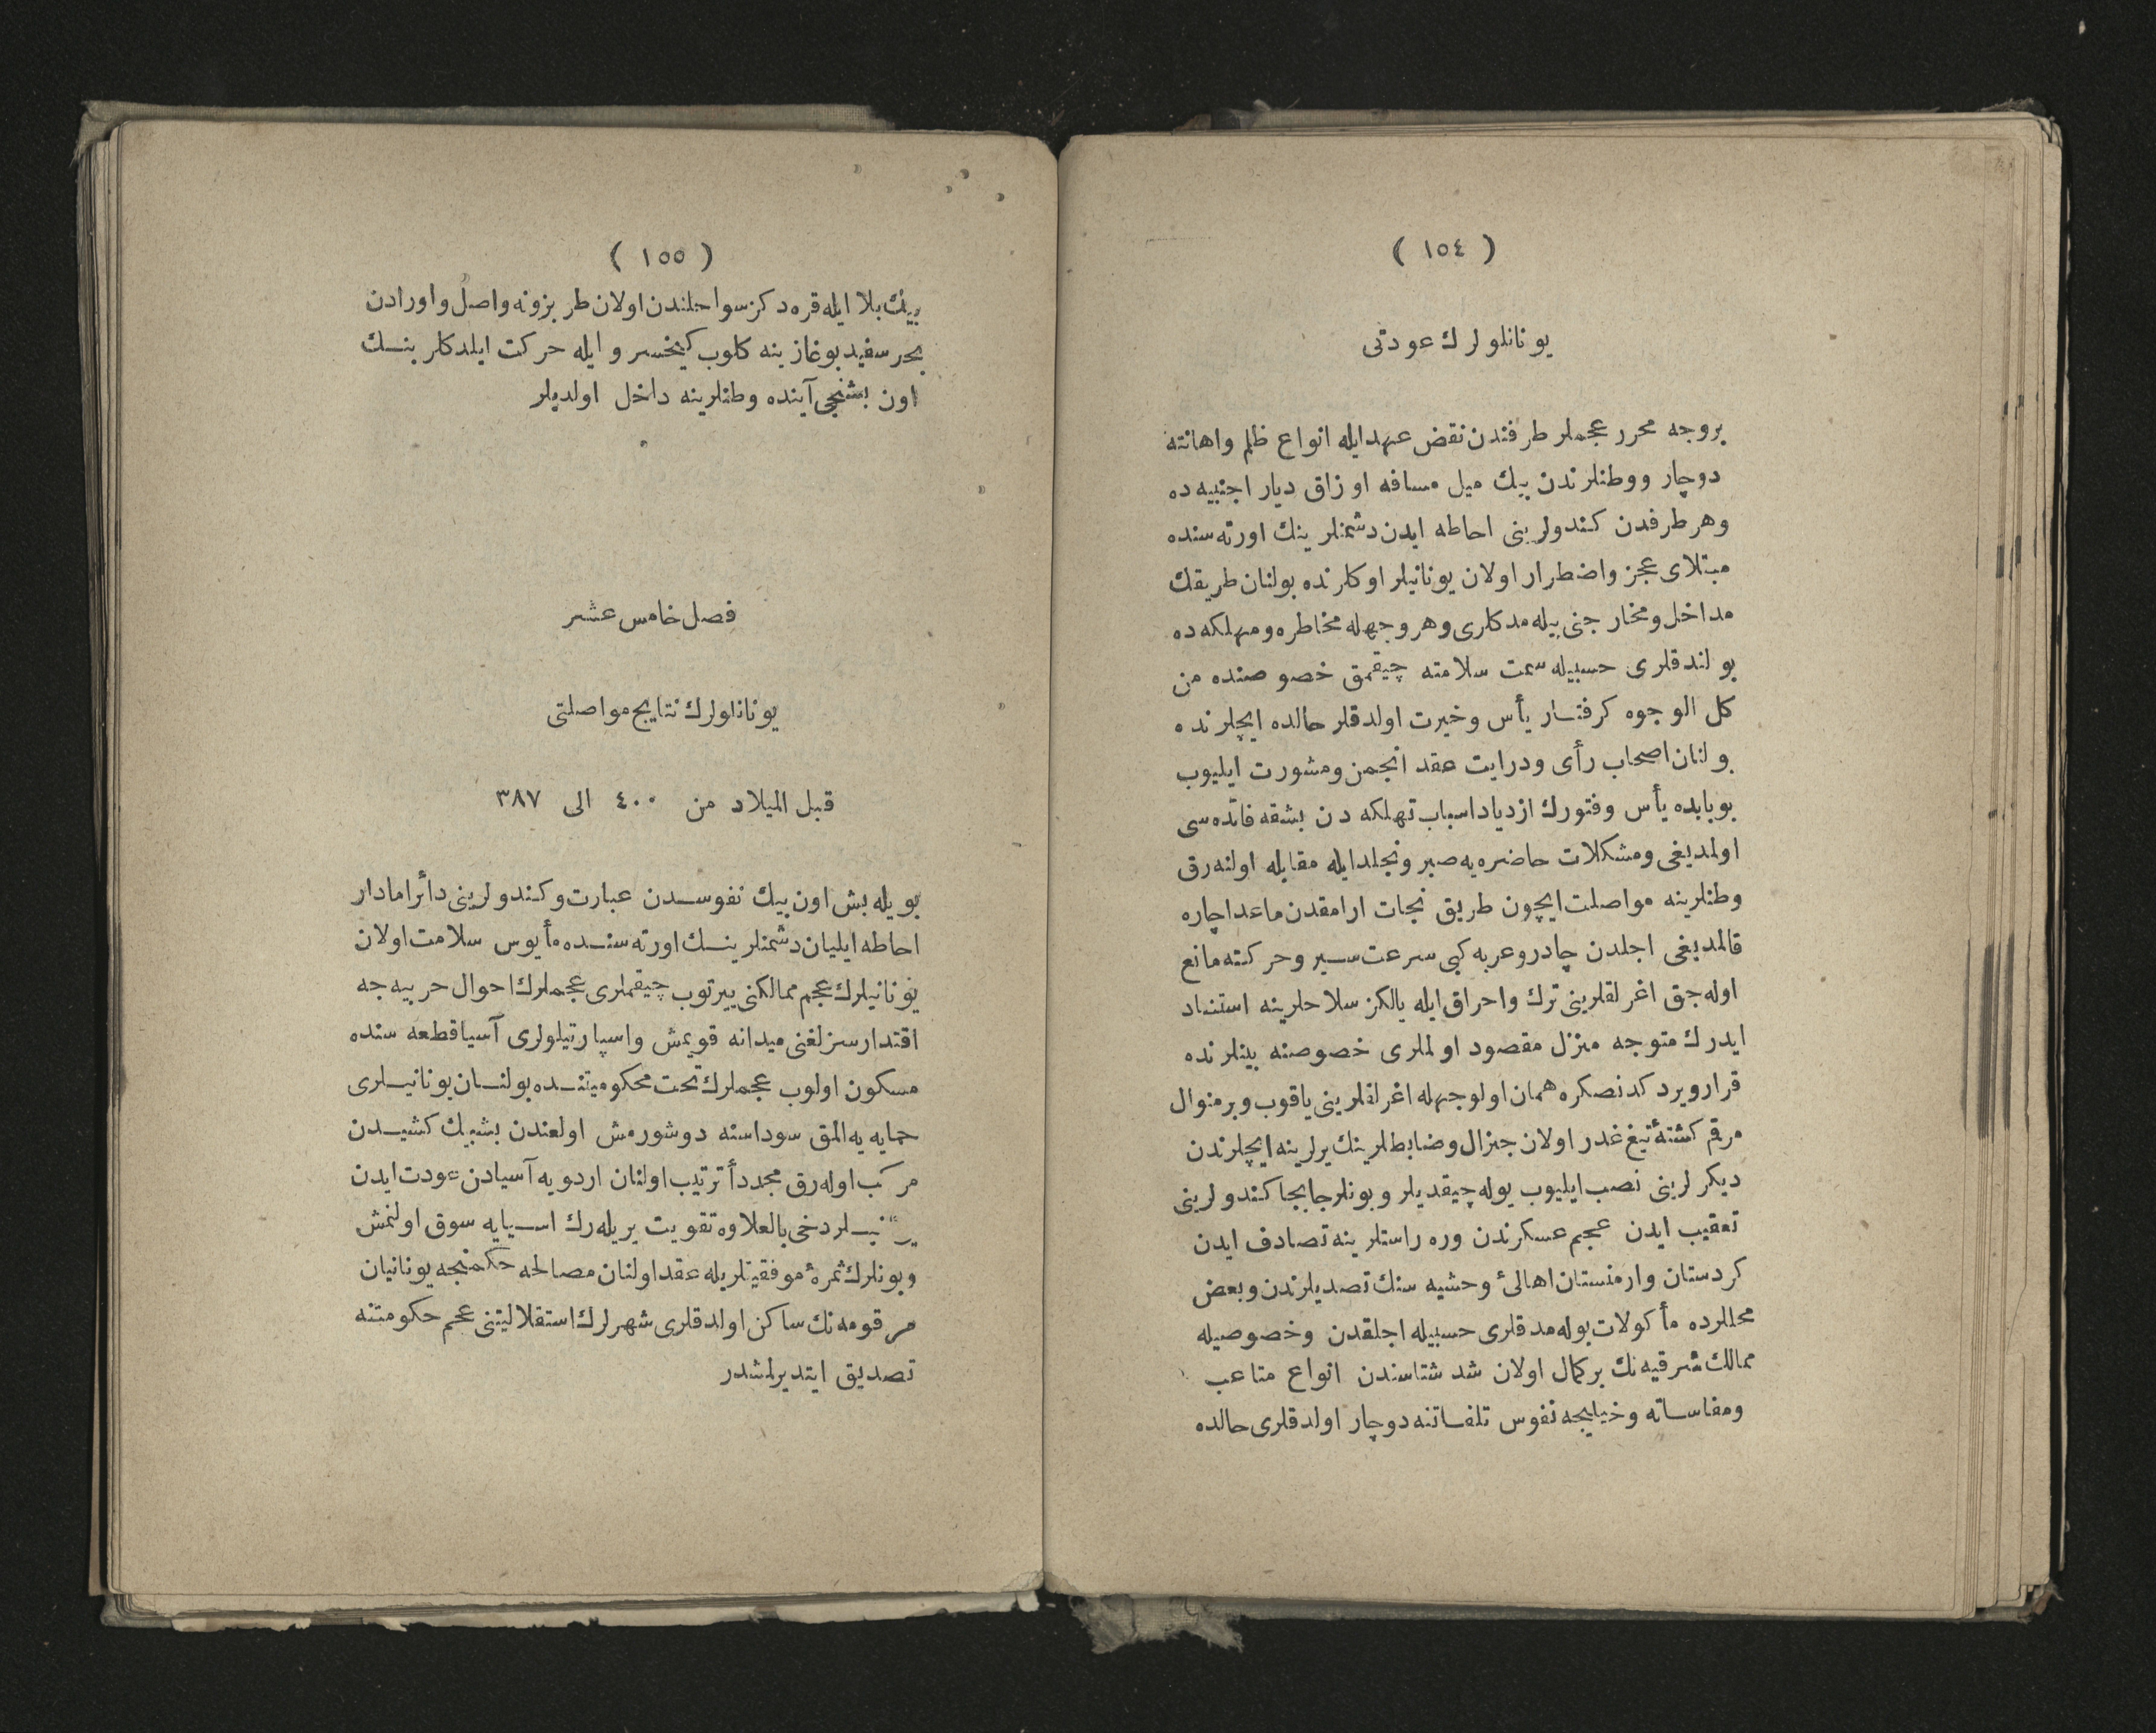 ( ١٥٤ )
يونانلولرك عودتی
بروجه محرر عجملر طرفندن نقض عهد ايله انواع ظلم واهانته
دوچار ووطنلرندن بيك ميل مسافه اوزاق ديار اجنبيه ده
وهر طرفدن كندولرينی احاطه ايدن دشمنلرينك اورته سنده
مبتلای عجز واضطرار اولان يونانيلر اوكلرنده بولنان طريقك
مداخل ومخارجنی بيله مدكلری وهر وجهله مخاطره ومهلكه ده
بولندقلری حسبيله سمت سلامته چيقمق خصوصنده من
كل الوجوه كرفتار يأس وخيرت اولدقلر حالده ايچلرنده
بولنان اصحاب رأی ودرايت عقد انجمن ومشورت ايليوب
بوبابده يأس وفتورك ازدياد اسباب تهلكه دن بشقه فائده سی
اولمديغی ومشكلات حاضره يه صبر وتجلد ايله مقابله اولنه رق
وطنلرينه مواصلت ايچون طريق نجات ارامقدن ماعدا چاره
قالمديغی اجلدن چادر وعربه كبی سرعت سير وحركته مانع
اوله جق اغرلقلرينی ترك واحراق ايله يالكز سلاحلرينه استناد
ايدرك متوجه منزل مقصود اولملری خصوصنه بينلرنده
قرار ويردكدنصكره همان اولوجهله اغرلقلرينی ياقوب وبرمنوال
مرقم كشتهٔ تيغ غدر اولان جنرال وضابطلرينك يرلرينه ايچلرندن
ديكرلرينی نصب ايليوب يوله چيقديلر وبونلر جابجا كندولرينی
تعقيب ايدن عجم عسكرندن وره راستلرينه تصادف ايدن
كردستان وارمنستان اهالیٔ وحشيه سنك تصديلرندن وبعض
محللرده مأكولات بوله مدقلری حسبيله اجلقدن وخصوصيله
ممالك شرقيه نك بركمال اولان شد شتاسندن انواع متاعب
ومقاساته وخيليجه نفوس تلفاتنه دوچار اولدقلری حالده
( ١٥٥ )
بيك بلا ايله قره دكز سواحلندن اولان طربزونه واصل واورادن
بحر سفيد بوغازينه كلوب كيخسرو ايله حركت ايلدكلرينك
اون بشنجی آينده وطنلرينه داخل اولديلر
فصل خامس عشر
يونانلولرك نتايج مواصلتی
قبل الميلاد من ٤٠٠ الی ٣٨٧
بويله بش اون بيك نفوسدن عبارت وكندولرينی دائرامادار
احاطه ايليان دشمنلرينك اورته سنده مأيوس سلامت اولان
يونانيلرك عجم ممالكنی ييرتوب چيقملری عجملرك احوال حربيه جه
اقتدارسزلغنی ميدانه قويمش واسپارتيلولری آسيا قطعه سنده
مسكون اولوب عجملرك تحت محكوميتنده بولنان يونانيلری
حمايه يه المق سوداسنه دوشورمش اولغندن بشبيك كشيدن
مركب اوله رق مجدداً ترتيب اولنان اردويه آسيادن عودت ايدن
نيلر دخی بالعلاوه تقويت يريله رك اسيايه سوق اولنمش
وبونلرك ثمرهٔ موفقيتلريله عقد اولنان مصالحه حكمنجه يونانيان
مرقومه نك ساكن اولدقلری شهرلرك استقلاليتنی عجم حكومتنه
تصديق ايتديرلمشدر